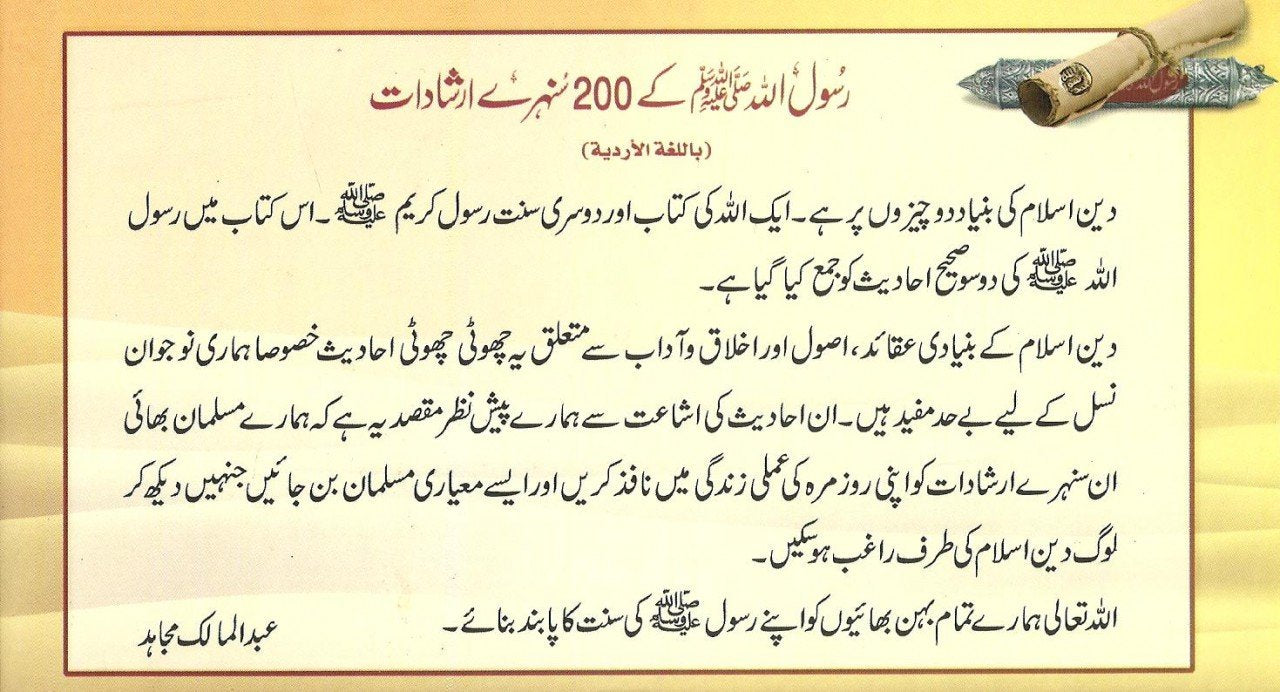 رسول اللہ ﷺ کے 200 سُنہرے ارشادات
(باللغة الأردية)
دین اسلام کی بنیاد دو چیزوں پر ہے۔ ایک اللہ کی کتاب اور دوسری سنت رسول کریم ﷺ ۔ اس کتاب میں رسول
اللہ ﷺ کی دو سو صحیح احادیث کو جمع کیا گیا ہے۔
دین اسلام کے بنیادی عقائد، اصول اور اخلاق و آداب سے متعلق یہ چھوٹی چھوٹی احادیث خصوصا ہماری نوجوان
نسل کے لیے بے حد مفید ہیں۔ ان احادیث کی اشاعت سے ہمارے پیش نظر مقصد یہ ہے کہ ہمارے مسلمان بھائی
ان سنہرے ارشادات کو اپنی روزمرہ کی عملی زندگی میں نافذ کریں اور ایسے معیاری مسلمان بن جائیں جنہیں دیکھ کر
لوگ دین اسلام کی طرف راغب ہو سکیں۔
اللہ تعالی ہمارے تمام بہن بھائیوں کو اپنے رسول ﷺ کی سنت کا پابند بنائے۔
عبدالمالک مجاہد